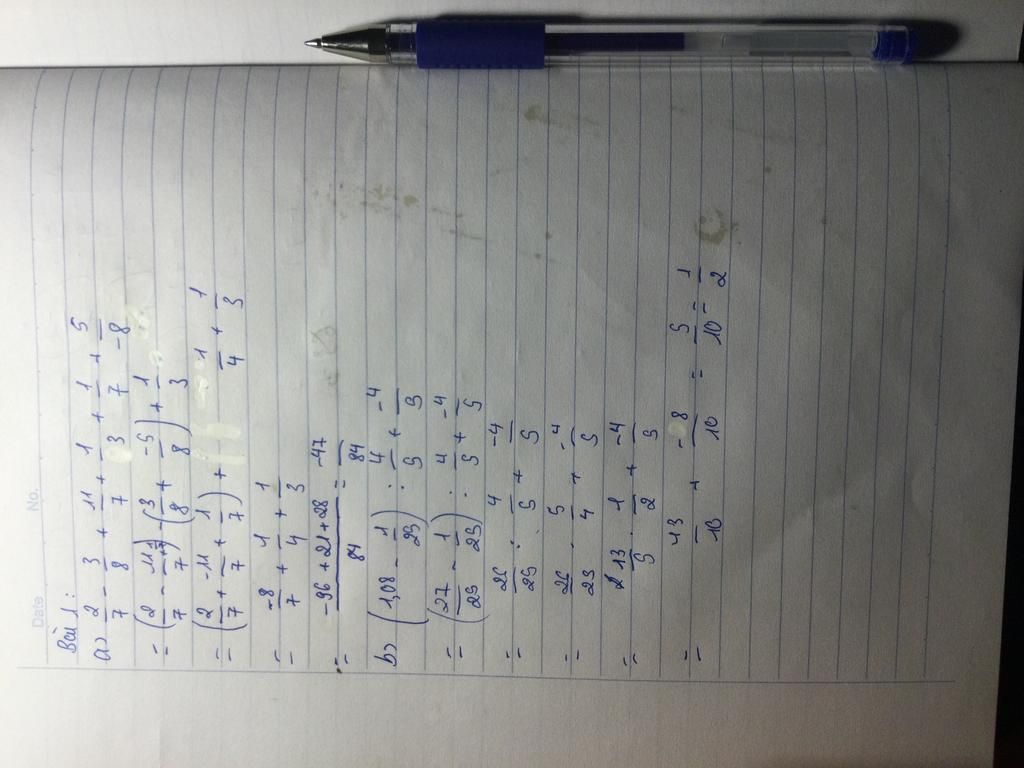 Date No.
Bài 1:
a) 2/7 - 3/8 + 11/7 + 1/3 + 1/7 + 5/-8
= (2/7 - 11/7 + 1/7) - (3/8 + -5/8) + 1/3
= (2/7 + -11/7 + 1/7) + 1/4 + 1/3
= -8/7 + 1/4 + 1/3
= -96 + 21 + 28/84 = -47/84
b) (1,08 - 1/25) : 4/5 + -4/5
= (27/25 - 1/25) : 4/5 + -4/5
= 26/25 : 4/5 + -4/5
= 26/25 . 5/4 + -4/5
= 13/5 . 1/2 + -4/5
= 13/10 + -8/10 = 5/10 = 1/2